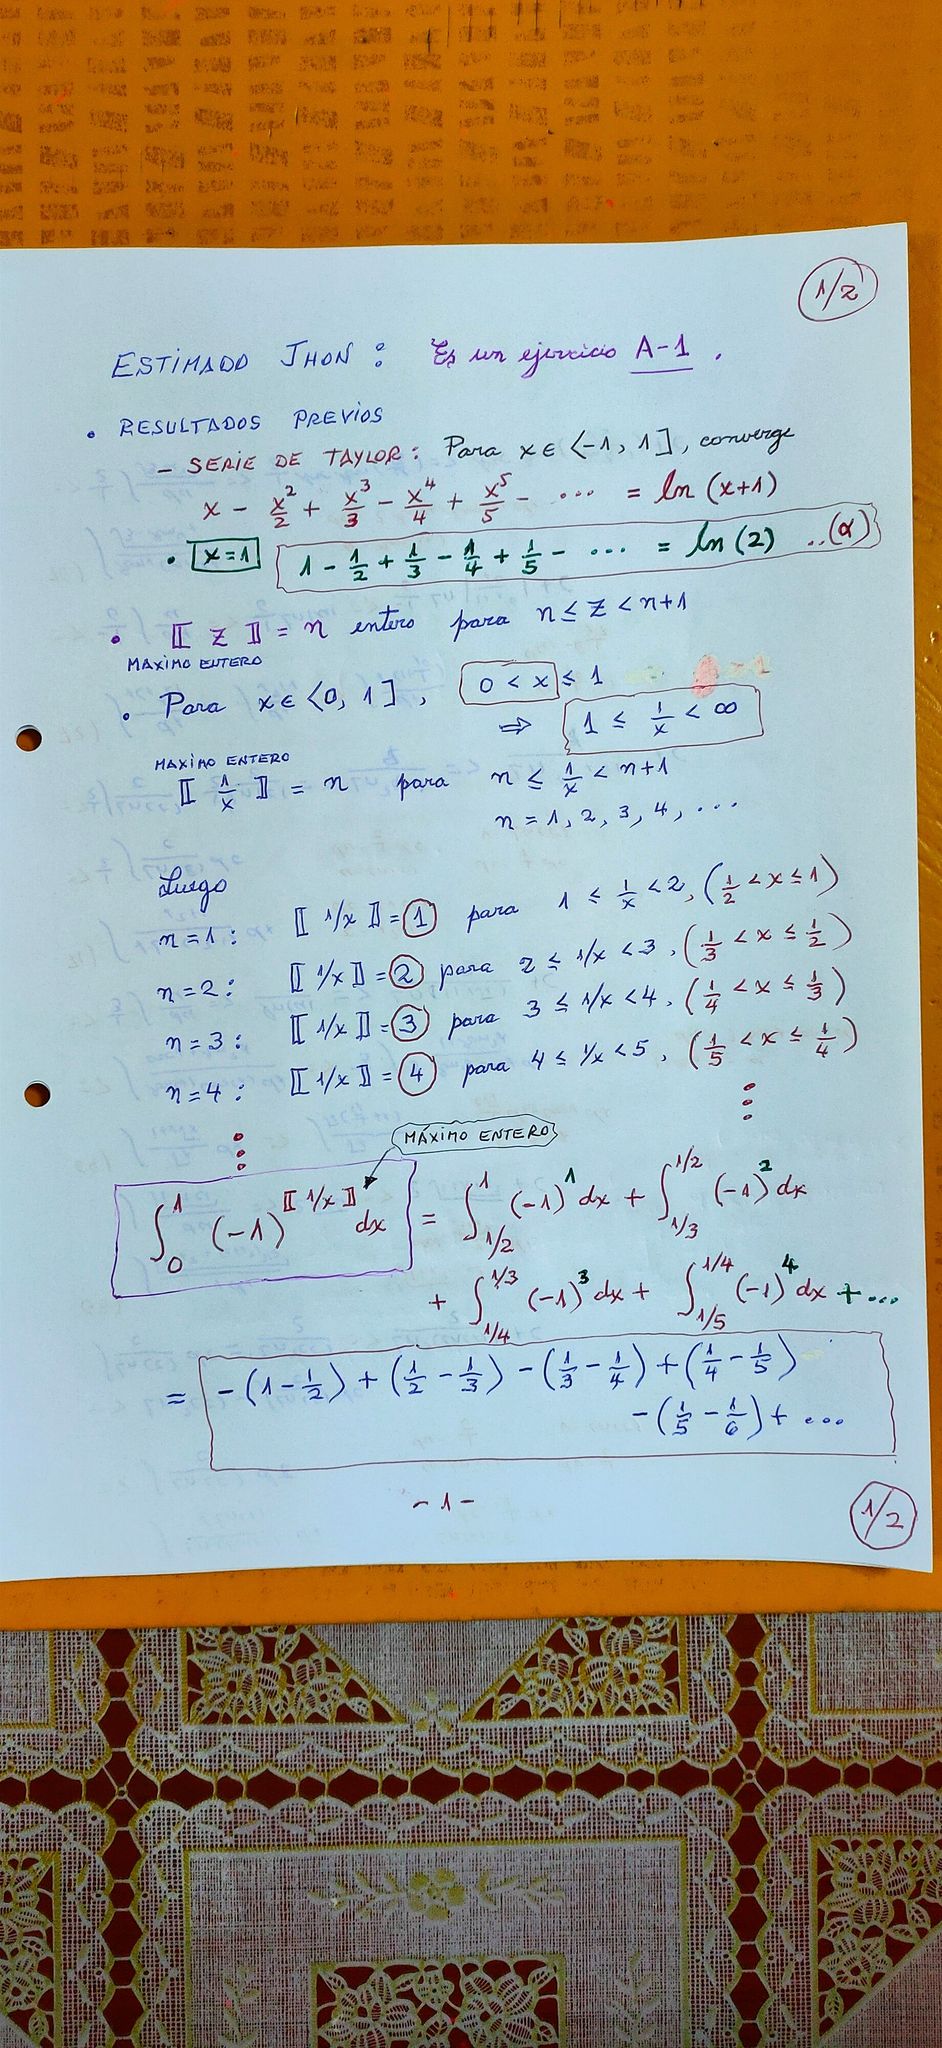 1/2
ESTIMADO JHON : Es un ejercicio A-1 .
• RESULTADOS PREVIOS
- SERIE DE TAYLOR : Para x ∈ ⟨-1, 1], converge
x - x²/2 + x³/3 - x⁴/4 + x⁵/5 - ... = ln (x+1)
• x=1 1 - 1/2 + 1/3 - 1/4 + 1/5 - ... = ln (2) ..(α)
• ⟦ z ⟧ = n entero para n ≤ z < n+1
MAXIMO ENTERO
• Para x ∈ ⟨0, 1], 0 < x ≤ 1
⇒ 1 ≤ 1/x < ∞
MAXIMO ENTERO
⟦ 1/x ⟧ = n para n ≤ 1/x < n+1
n = 1, 2, 3, 4, ...
Luego
n=1 : ⟦ 1/x ⟧ = 1 para 1 ≤ 1/x < 2, (1/2 < x ≤ 1)
n=2 : ⟦ 1/x ⟧ = 2 para 2 ≤ 1/x < 3, (1/3 < x ≤ 1/2)
n=3 : ⟦ 1/x ⟧ = 3 para 3 ≤ 1/x < 4, (1/4 < x ≤ 1/3)
n=4 : ⟦ 1/x ⟧ = 4 para 4 ≤ 1/x < 5, (1/5 < x ≤ 1/4)
⋮ ⋮
MÁXIMO ENTERO
∫₀¹ (-1)^⟦1/x⟧ dx = ∫_{1/2}^{1} (-1)¹ dx + ∫_{1/3}^{1/2} (-1)² dx
+ ∫_{1/4}^{1/3} (-1)³ dx + ∫_{1/5}^{1/4} (-1)⁴ dx + ...
= -(1 - 1/2) + (1/2 - 1/3) - (1/3 - 1/4) + (1/4 - 1/5)
-(1/5 - 1/6) + ...
- 1 -
1/2